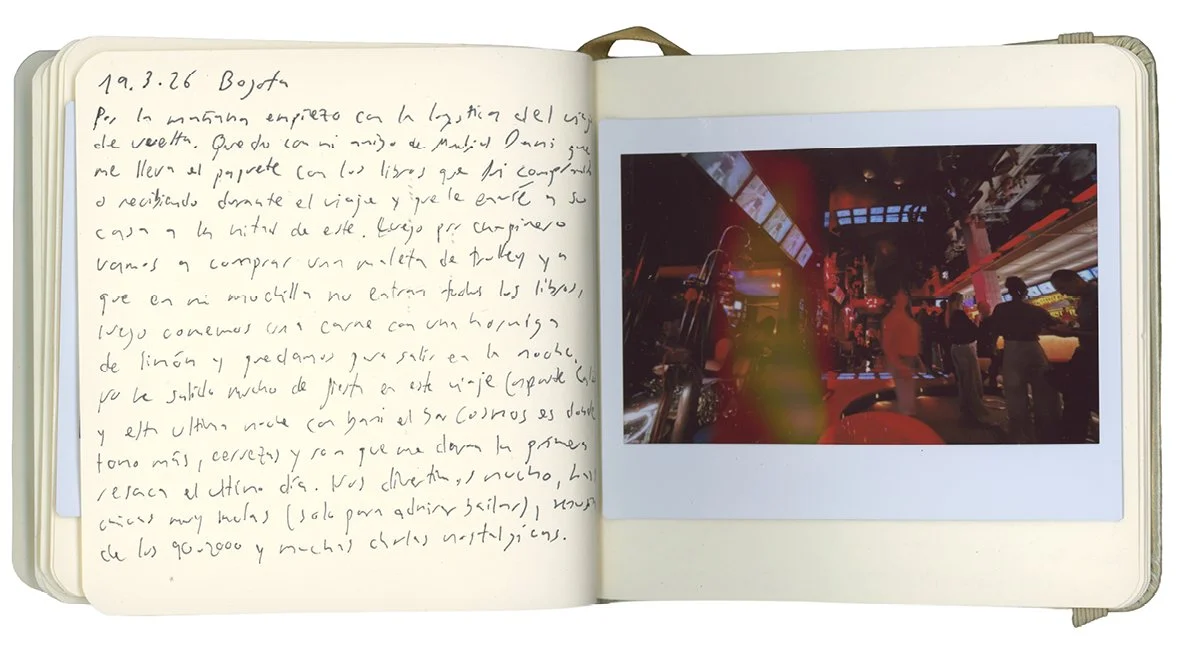 19.3.26 Bogota
Por la mañana empiezo con la logística del viaje
de vuelta. Quedo con mi amigo de Madrid Dani que
me lleva el paquete con los libros que fui comprando
o recibiendo durante el viaje y que le envíe a su
casa a la mitad de este. Luego por chapinero
vamos a comprar una maleta de trolley ya
que en mi mochila no entran todos los libros,
luego comemos una carne con una hormiga
de limón y quedamos para salir en la noche.
no he salido mucho de fiesta en este viaje (aparte
y esta ultima noche con Dani el bar Cosmos es donde
tomo más, cervezas y ron que me daran la primera
resaca el ultimo día. Nos divertimos mucho, hay
chicas muy (solo para admirar bailar),
de los 90-2000 y muchas charlas nostalgicas.